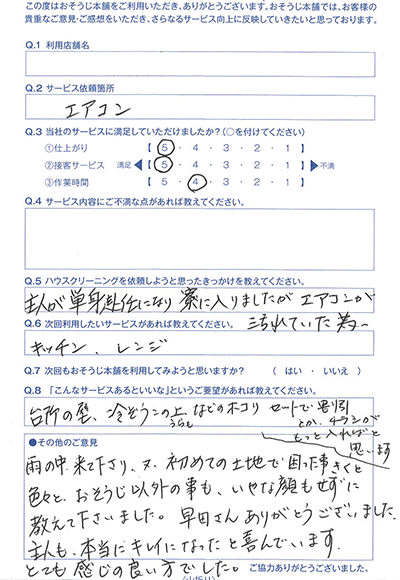 この度はおそうじ本舗をご利用いただき、ありがとうございます。おそうじ本舗では、お客様の
貴重なご意見・ご感想をいただき、さらなるサービス向上に反映していきたいと思っております。
Q.1 利用店舗名
Q.2 サービス依頼箇所
エアコン
Q.3 当社のサービスに満足していただけましたか?(○を付けてください)
①仕上がり 【 5 ・ 4 ・ 3 ・ 2 ・ 1 】
②接客サービス 満足 ◀【 5 ・ 4 ・ 3 ・ 2 ・ 1 】▶ 不満
③作業時間 【 5 ・ 4 ・ 3 ・ 2 ・ 1 】
Q.4 サービス内容にご不満な点があれば教えてください。
Q.5 ハウスクリーニングを依頼しようと思ったきっかけを教えてください。
主人が単身赴任になり寮に入りましたがエアコンが
汚れていた為
Q.6 次回利用したいサービスがあれば教えてください。
キッチン、レンジ
Q.7 次回もおそうじ本舗を利用してみようと思いますか? ( はい ・ いいえ )
Q.8 「こんなサービスあるといいな」というご要望があれば教えてください。
台所の壁、冷ぞうこの上うらもなどのホコリ セットで割引
とか、チラシが
もっと入ればと
思います
●その他のご意見
雨の中、来て下さり、又、初めての土地で困った事きくと
色々と、おそうじ以外の事も、いやな顔もせずに
教えて下さいました。早田さんありがとうございました。
主人も、本当にキレイになったと喜んでいます。
とても感じの良い方でした。
ご協力ありがとうございました。